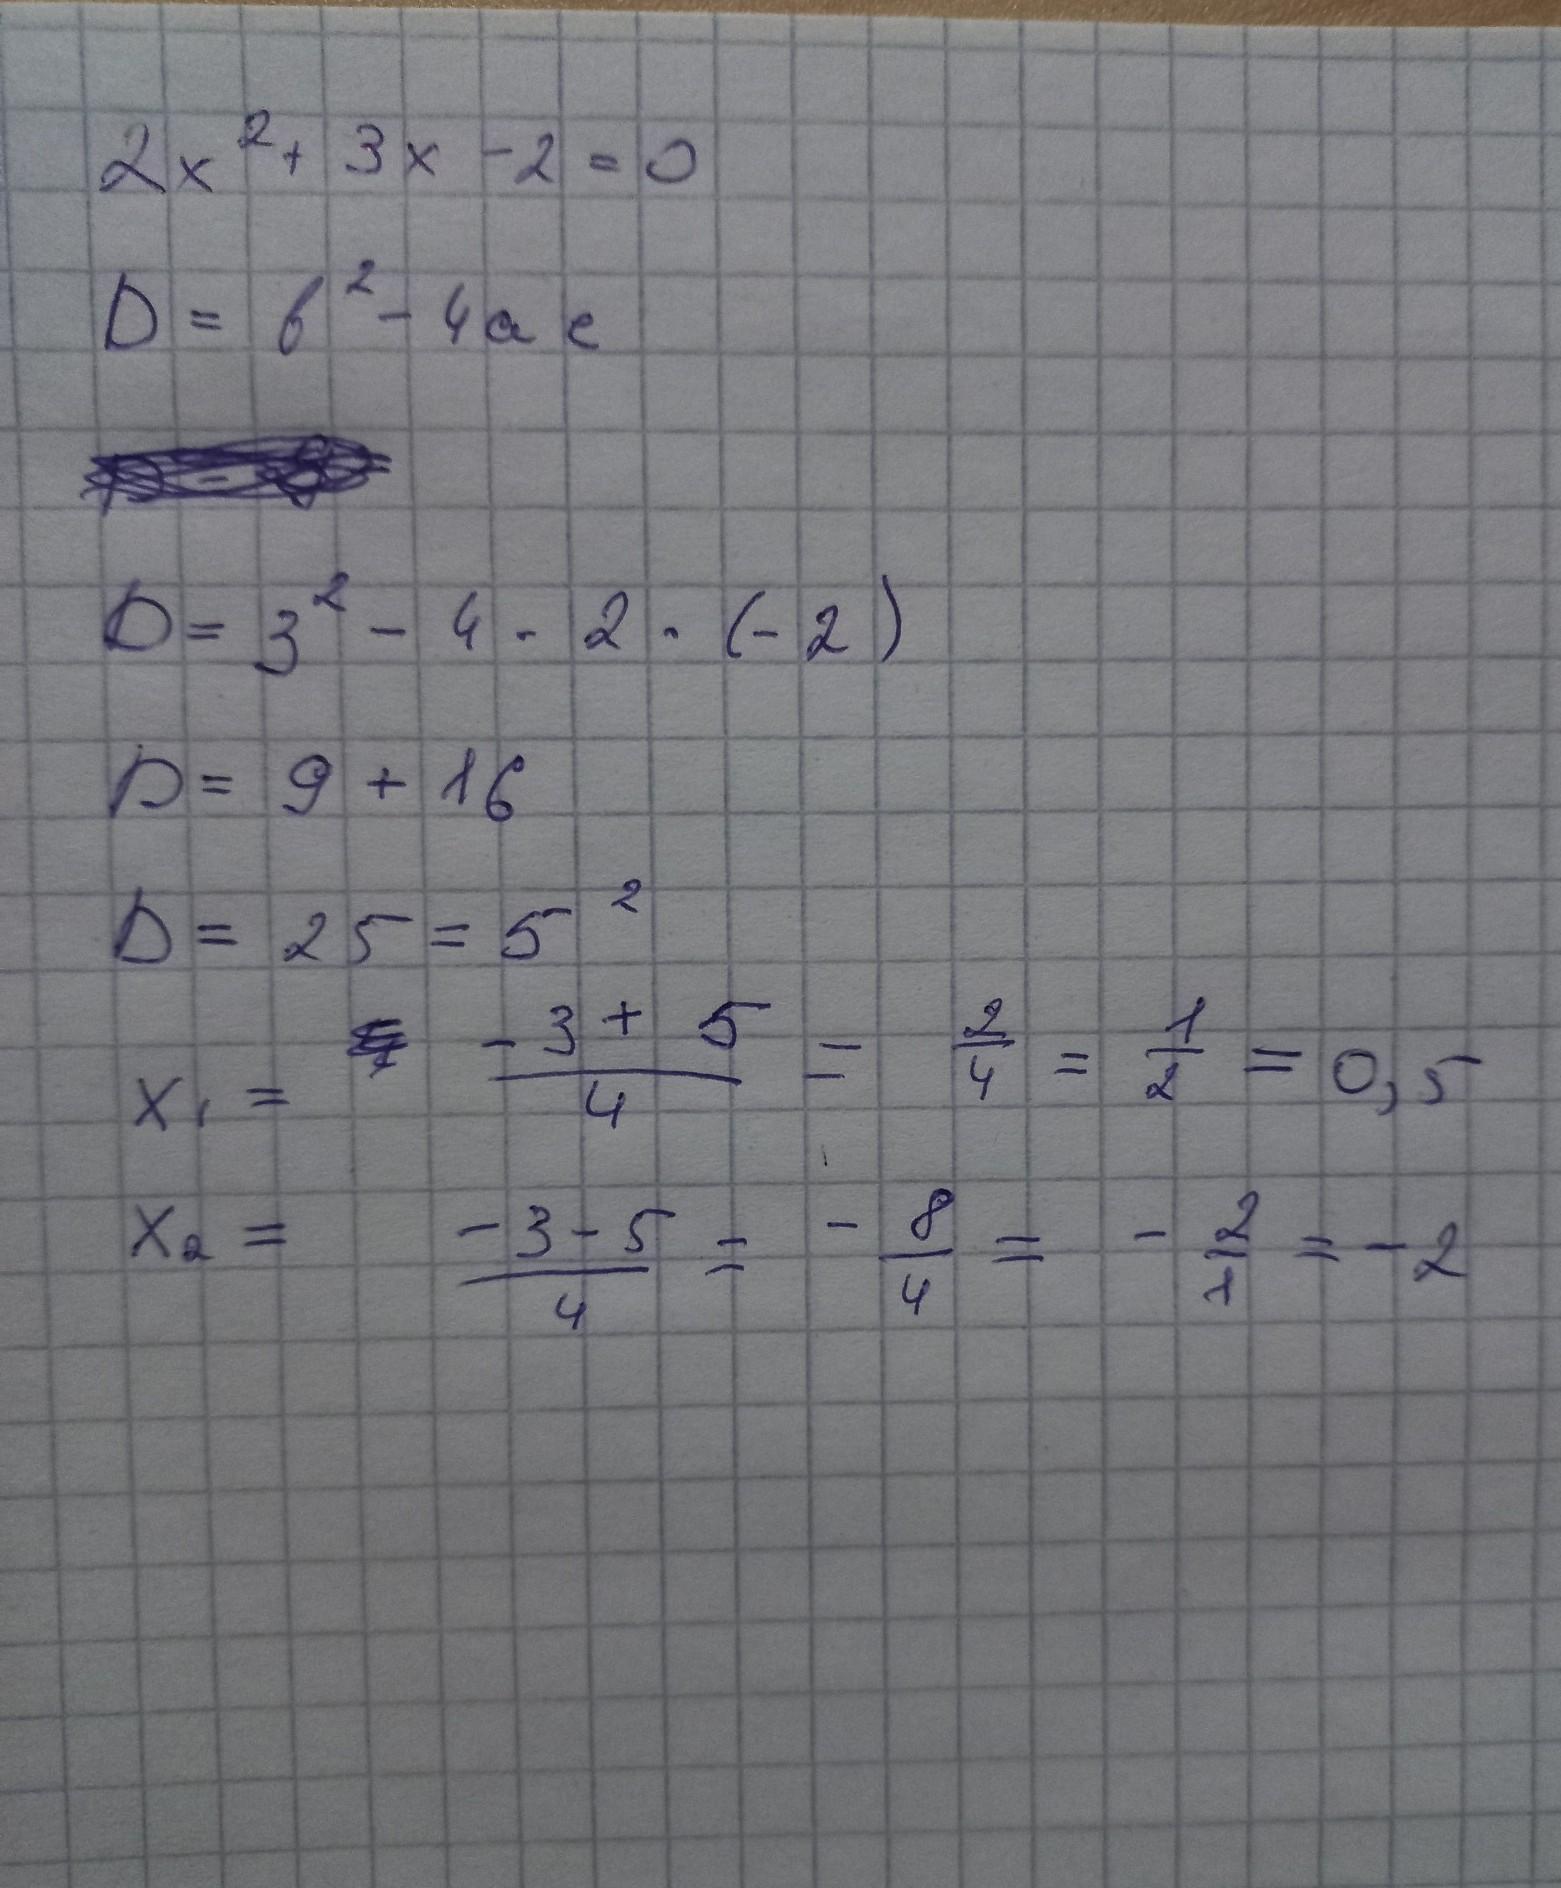 2x² + 3x - 2 = 0
D = b² - 4ac
D = 3² - 4 · 2 · (-2)
D = 9 + 16
D = 25 = 5²
x₁ = (-3 + 5)/4 = 2/4 = 1/2 = 0,5
x₂ = (-3 - 5)/4 = - 8/4 = - 2/1 = -2